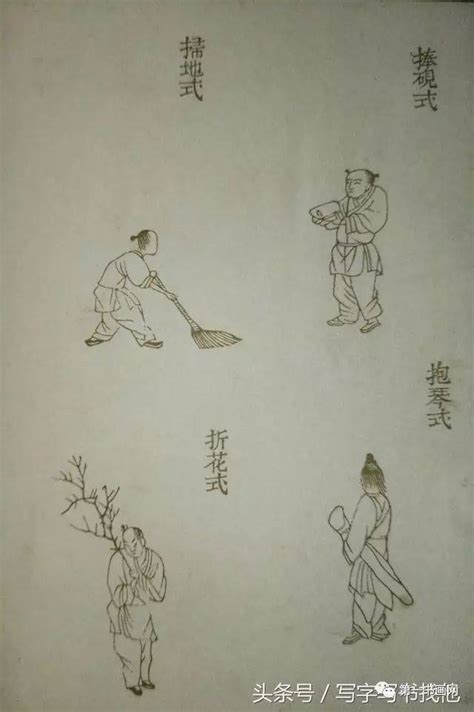 捧硯式
掃地式
抱琴式
折花式
头条号／写字与书找他